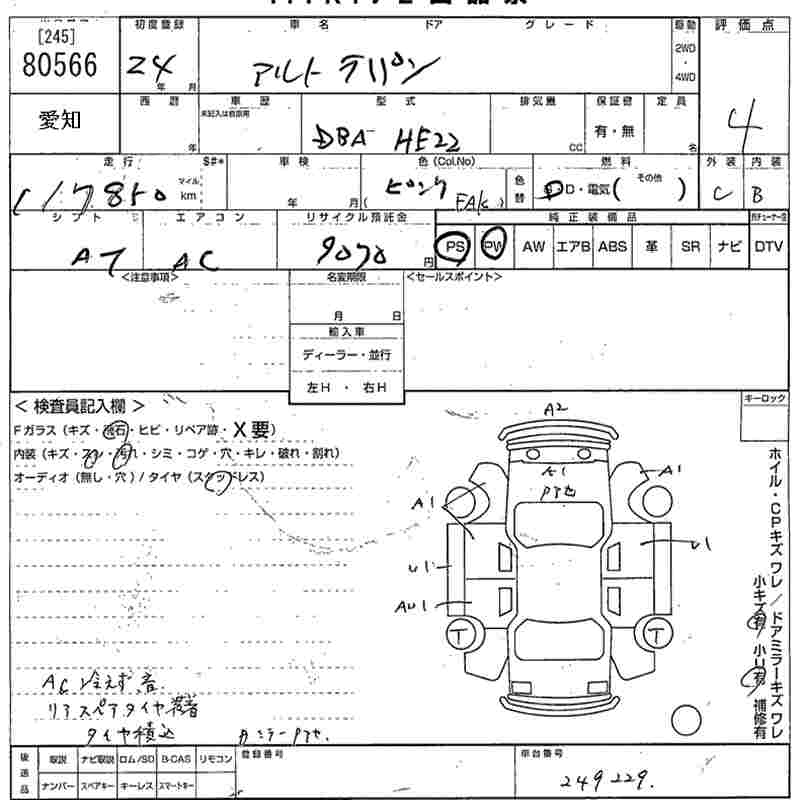 [245]
80566
愛知
初度登録 車名 ドア グレード 駆動 評価点
24 年 月 アルト ラパン 2WD・4WD 4
西暦 車歴 型式 排気量 保証書 定員
年 未記入は自家用 DBA HE22 CC 有・無 名
走行 S#* 車検 色(Col.No) 燃料 外装 内装
117850 マイル km 年 月 ( ピンク ) 色替 ・D・電気( その他 ) C B
シフト エアコン リサイクル預託金 純正装備品
AT AC 9070 円 PS PW AW エアB ABS 革 SR ナビ DTV
<注意事項> 名変期限 <セールスポイント>
月 日
輸入車
ディーラー・並行
左H・右H
< 検査員記入欄 > キーロック
Fガラス (キズ・飛石・ヒビ・リペア跡・X要)
内装 (キズ・スレ・汚れ・シミ・コゲ・穴・キレ・破れ・割れ)
オーディオ (無し・穴) / タイヤ (スタッドレス)
A2
A1
A1
A1
U1
U1
AU1
T
T
ホイル・CPキズ ワレ / ドアミラーキズ ワレ
小キズ有 / 小U有 補修有
AC冷えず
リアスペアタイヤ装着
タイヤ積込
後送品 取説 ナビ取説 ロム/SD B-CAS リモコン 登録番号 車台番号
ナンバー スペアキー キーレス スマートキー 249229.